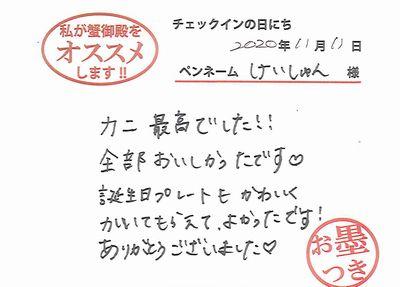 私が蟹御殿を
オススメ
します!!
チェックインの日にち
2020年11月11日
ペンネーム けいしゅん 様
カニ 最高でした!!
全部おいしかったです♡
誕生日プレートも かわいく
かいてもらえて、よかったです!
ありがとうございました♡
お墨
つき